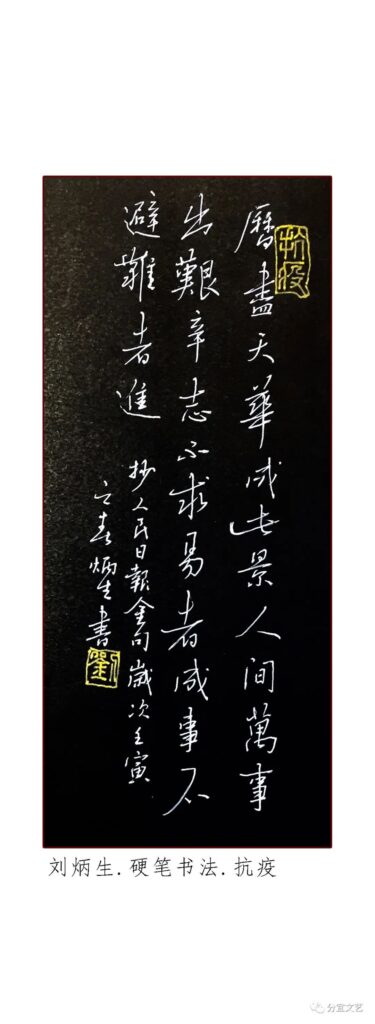 抗疫
曆盡天華成此景人間萬事
出艱辛志不求易者成事不
避難者進
抄人民日報金句歲次壬寅
之春炳生書
劉
刘炳生.硬笔书法.抗疫
分宜文艺